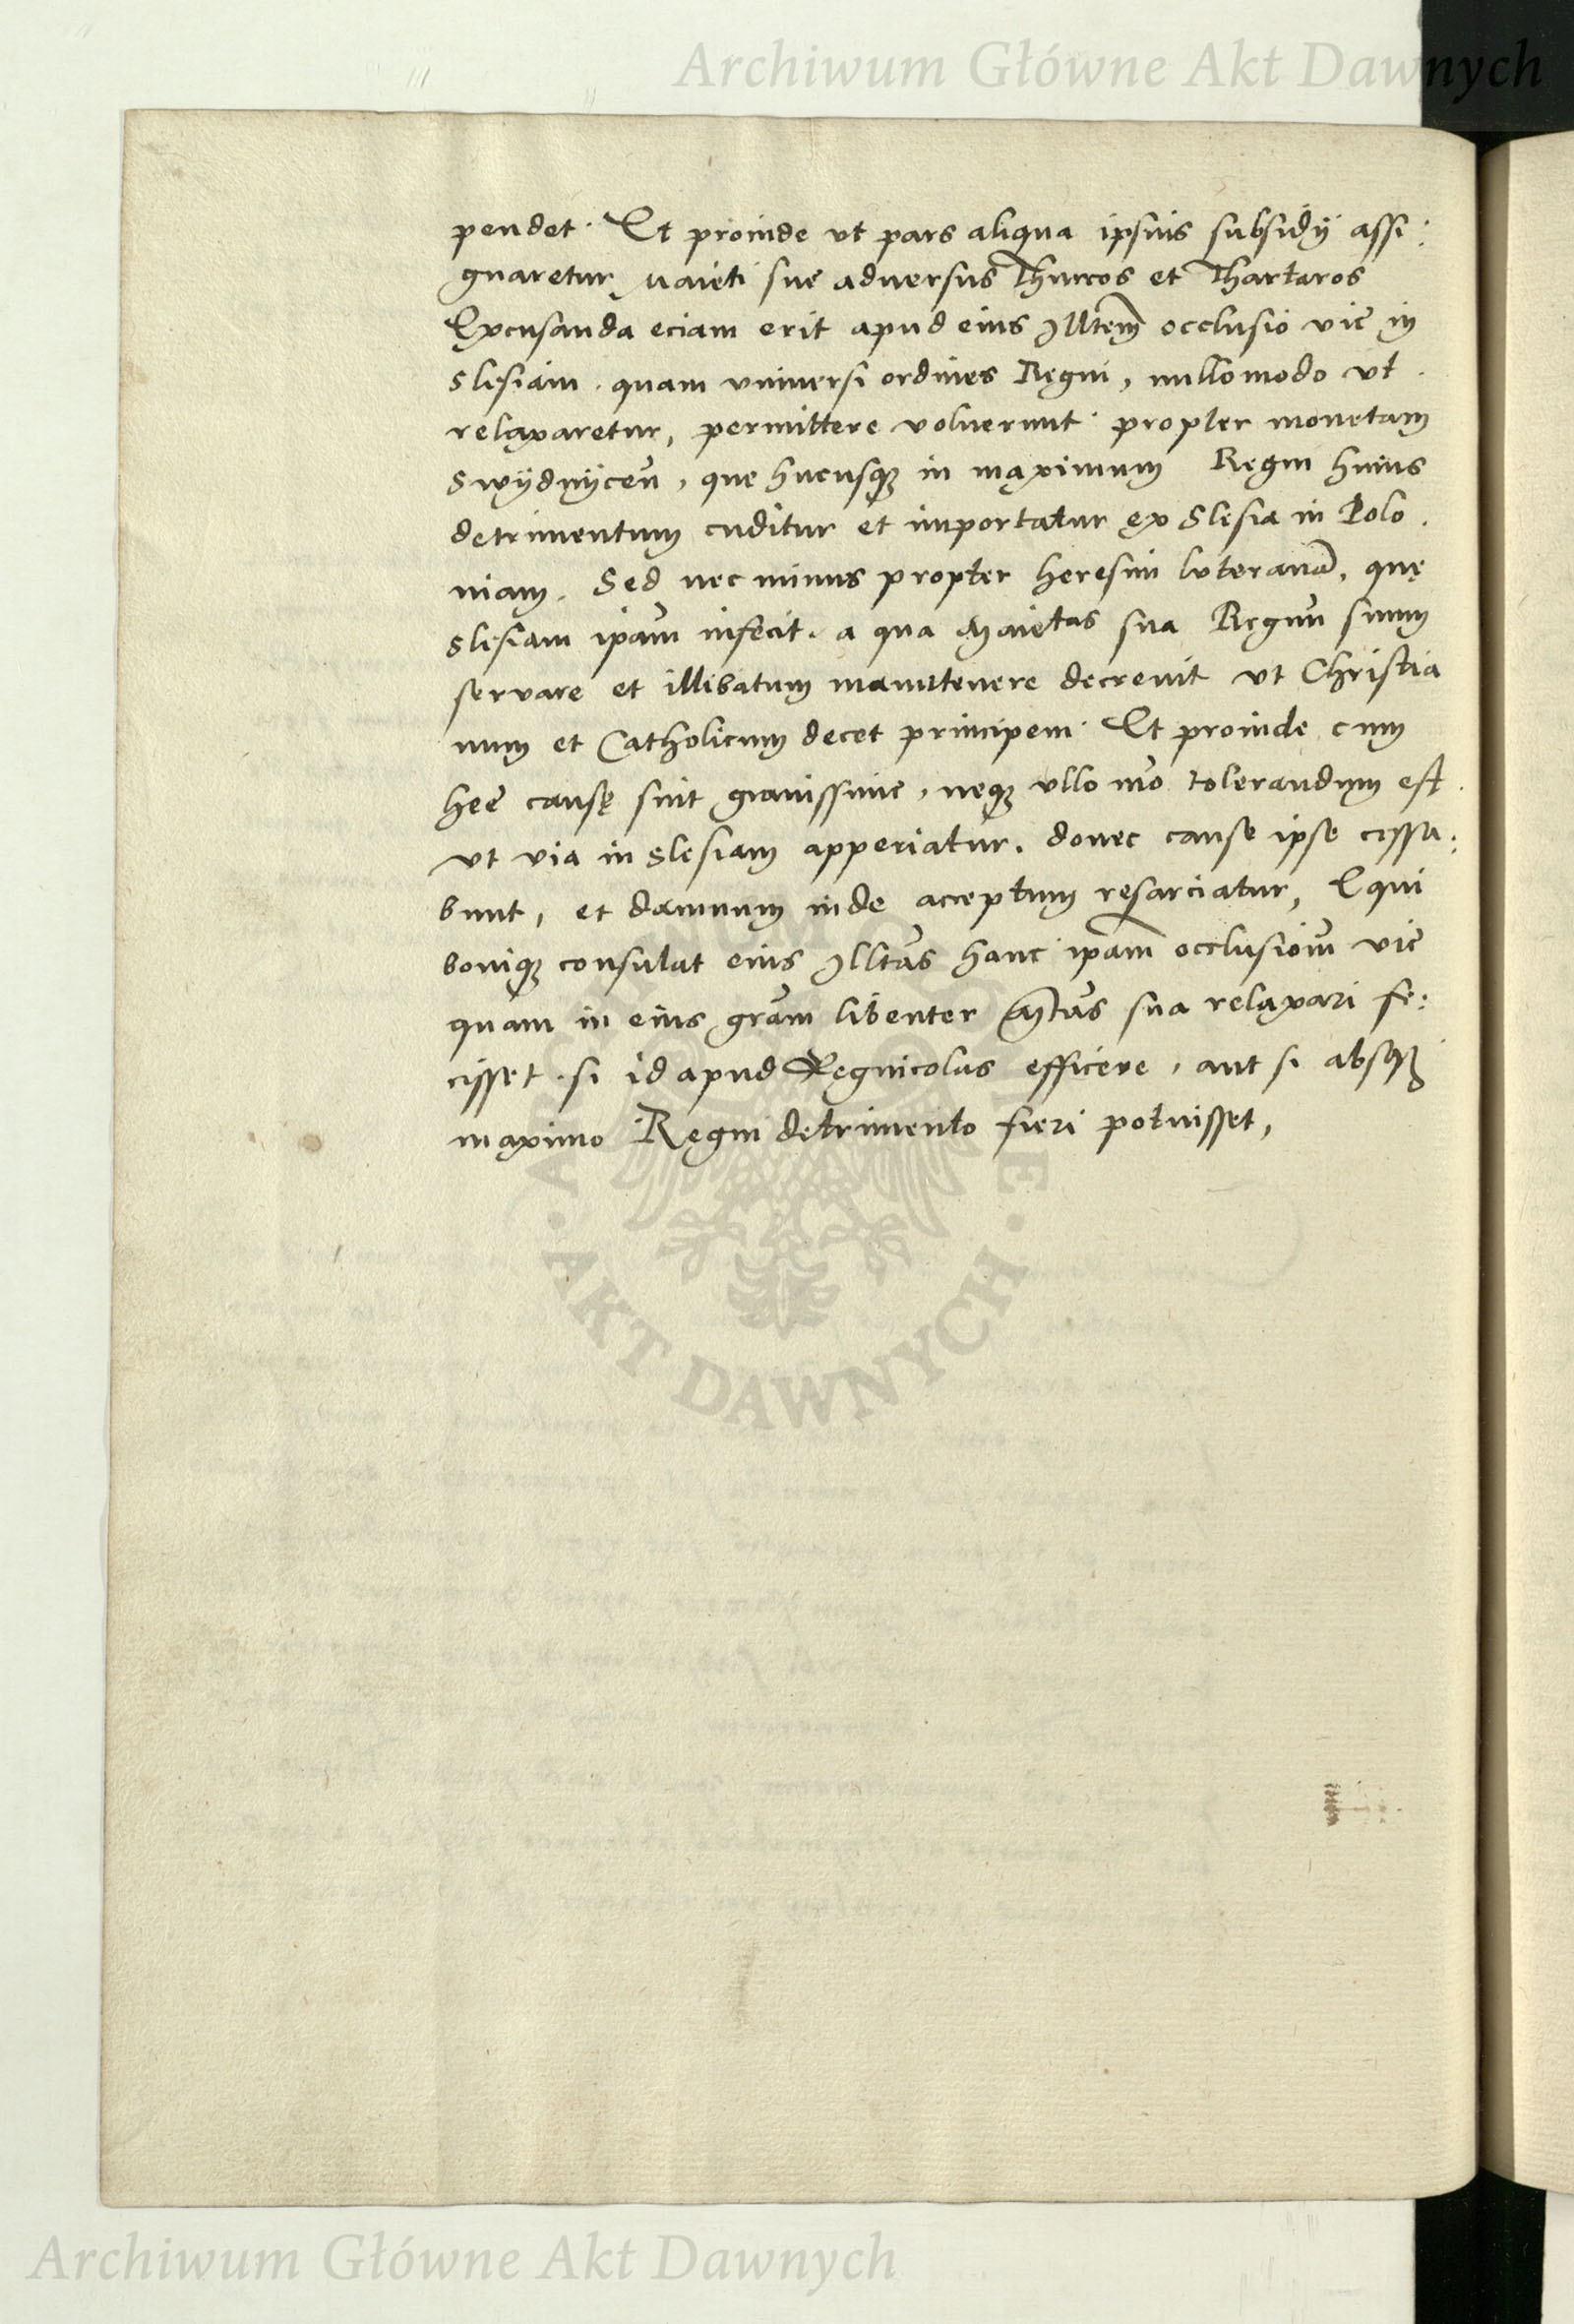 Archiwum Główne Akt Dawnych
pendet. Et proinde ut pars aliqua ipsius subsidÿ assi:
gnaretur Maieti sue adversus Thurcos et Thartaros
Excusanda eciam erit apud eius Illtem occlusio vie in
Slesiam. quam universi ordines Regni, nullomodo ut
relaxaretur, permittere voluerunt. propter monetam
Swÿdnÿceñ, que hucusqꝫ in maximum Regni huius
detrimentum cuditur et importatur ex Slesia in Polo
niam. Sed nec minus propter heresim luteranā, quę
Slesiam ipam infecit. a qua Maietas sua Regnū suum
servare et illibatum manutenere decrevit ut Christia
num et Catholicum decet principem. Et proinde cum
hee causę sint gravissime, neqꝫ ullo mō tolerandum est
ut via in Slesiam apperiatur. donec cause ipse cessa:
bunt, et damnum inde acceptum resarciatur, Equi
boniqꝫ consulat eius Illtas hanc ipam occlusiom vie
quam in eius gram libenter Mtas sua relaxari fe:
cisset. si id apud Regnicolas efficere, aut si absqꝫ
maximo Regni detrimento fieri potuisset,
AKT DAWNYCH
Archiwum Główne Akt Dawnych